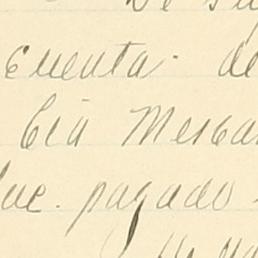 De su
Cuenta. de
Cia Merca
fue. pagado